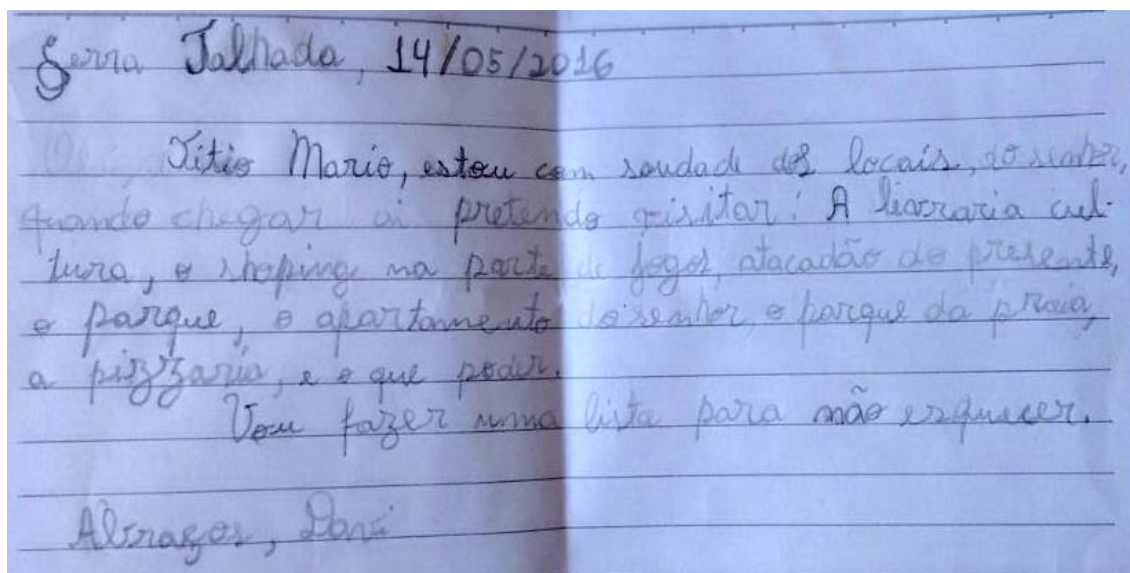 Serra Talhada, 14/05/2016
Titio Mario, estou com saudade dos locais, do senhor,
quando chegar ai pretendo visitar: A livraria cul-
tura, o shoping na parte de jogos, atacadão do presente,
o parque, o apartamento do senhor, o parque da praia,
a pizzaria, e o que poder.
Vou fazer uma lista para não esquecer.
Abraços, Davi